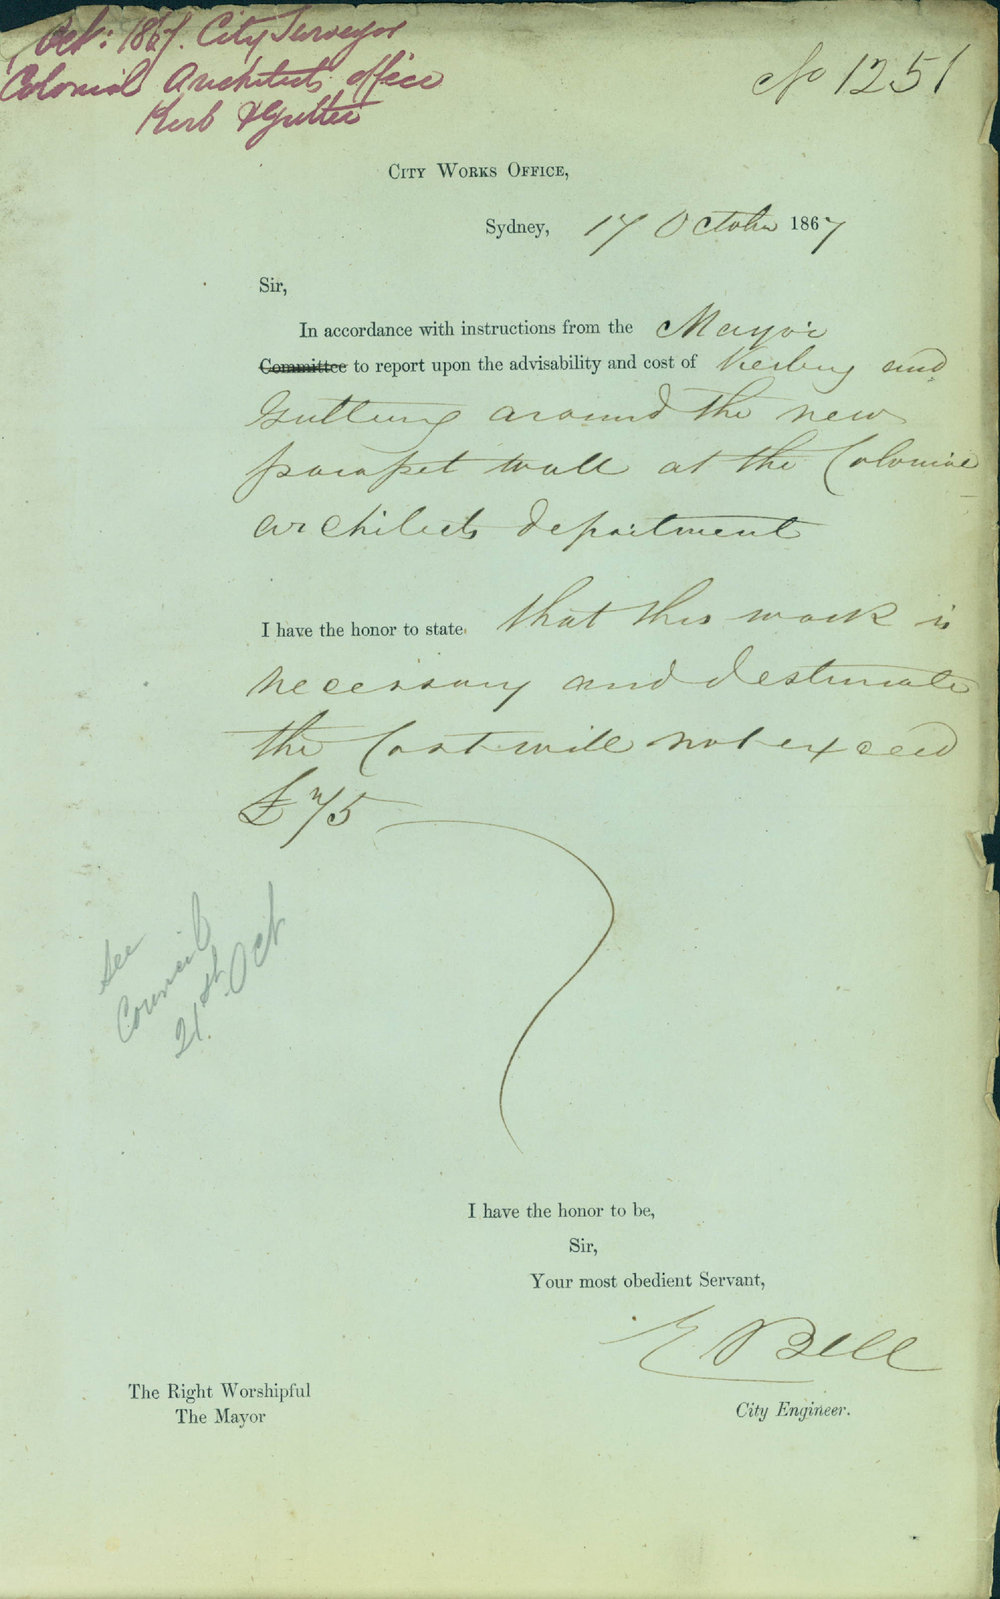 Oct: 1867. City Surveyor
Colonial Architects office
Kerb & Gutter
No 1251
City Works Office,
Sydney, 17 October 1867
Sir,
In accordance with instructions from the Mayor
Committee to report upon the advisability and cost of Kerbing and
Guttering around the new
parapet wall at the Colonial
architects department
I have the honor to state that this work is
necessary and I estimate
the Cost will not exceed
£75
See
Council
21st. Oct
I have the honor to be,
Sir,
Your most obedient Servant,
E Bell
City Engineer.
The Right Worshipful
The Mayor